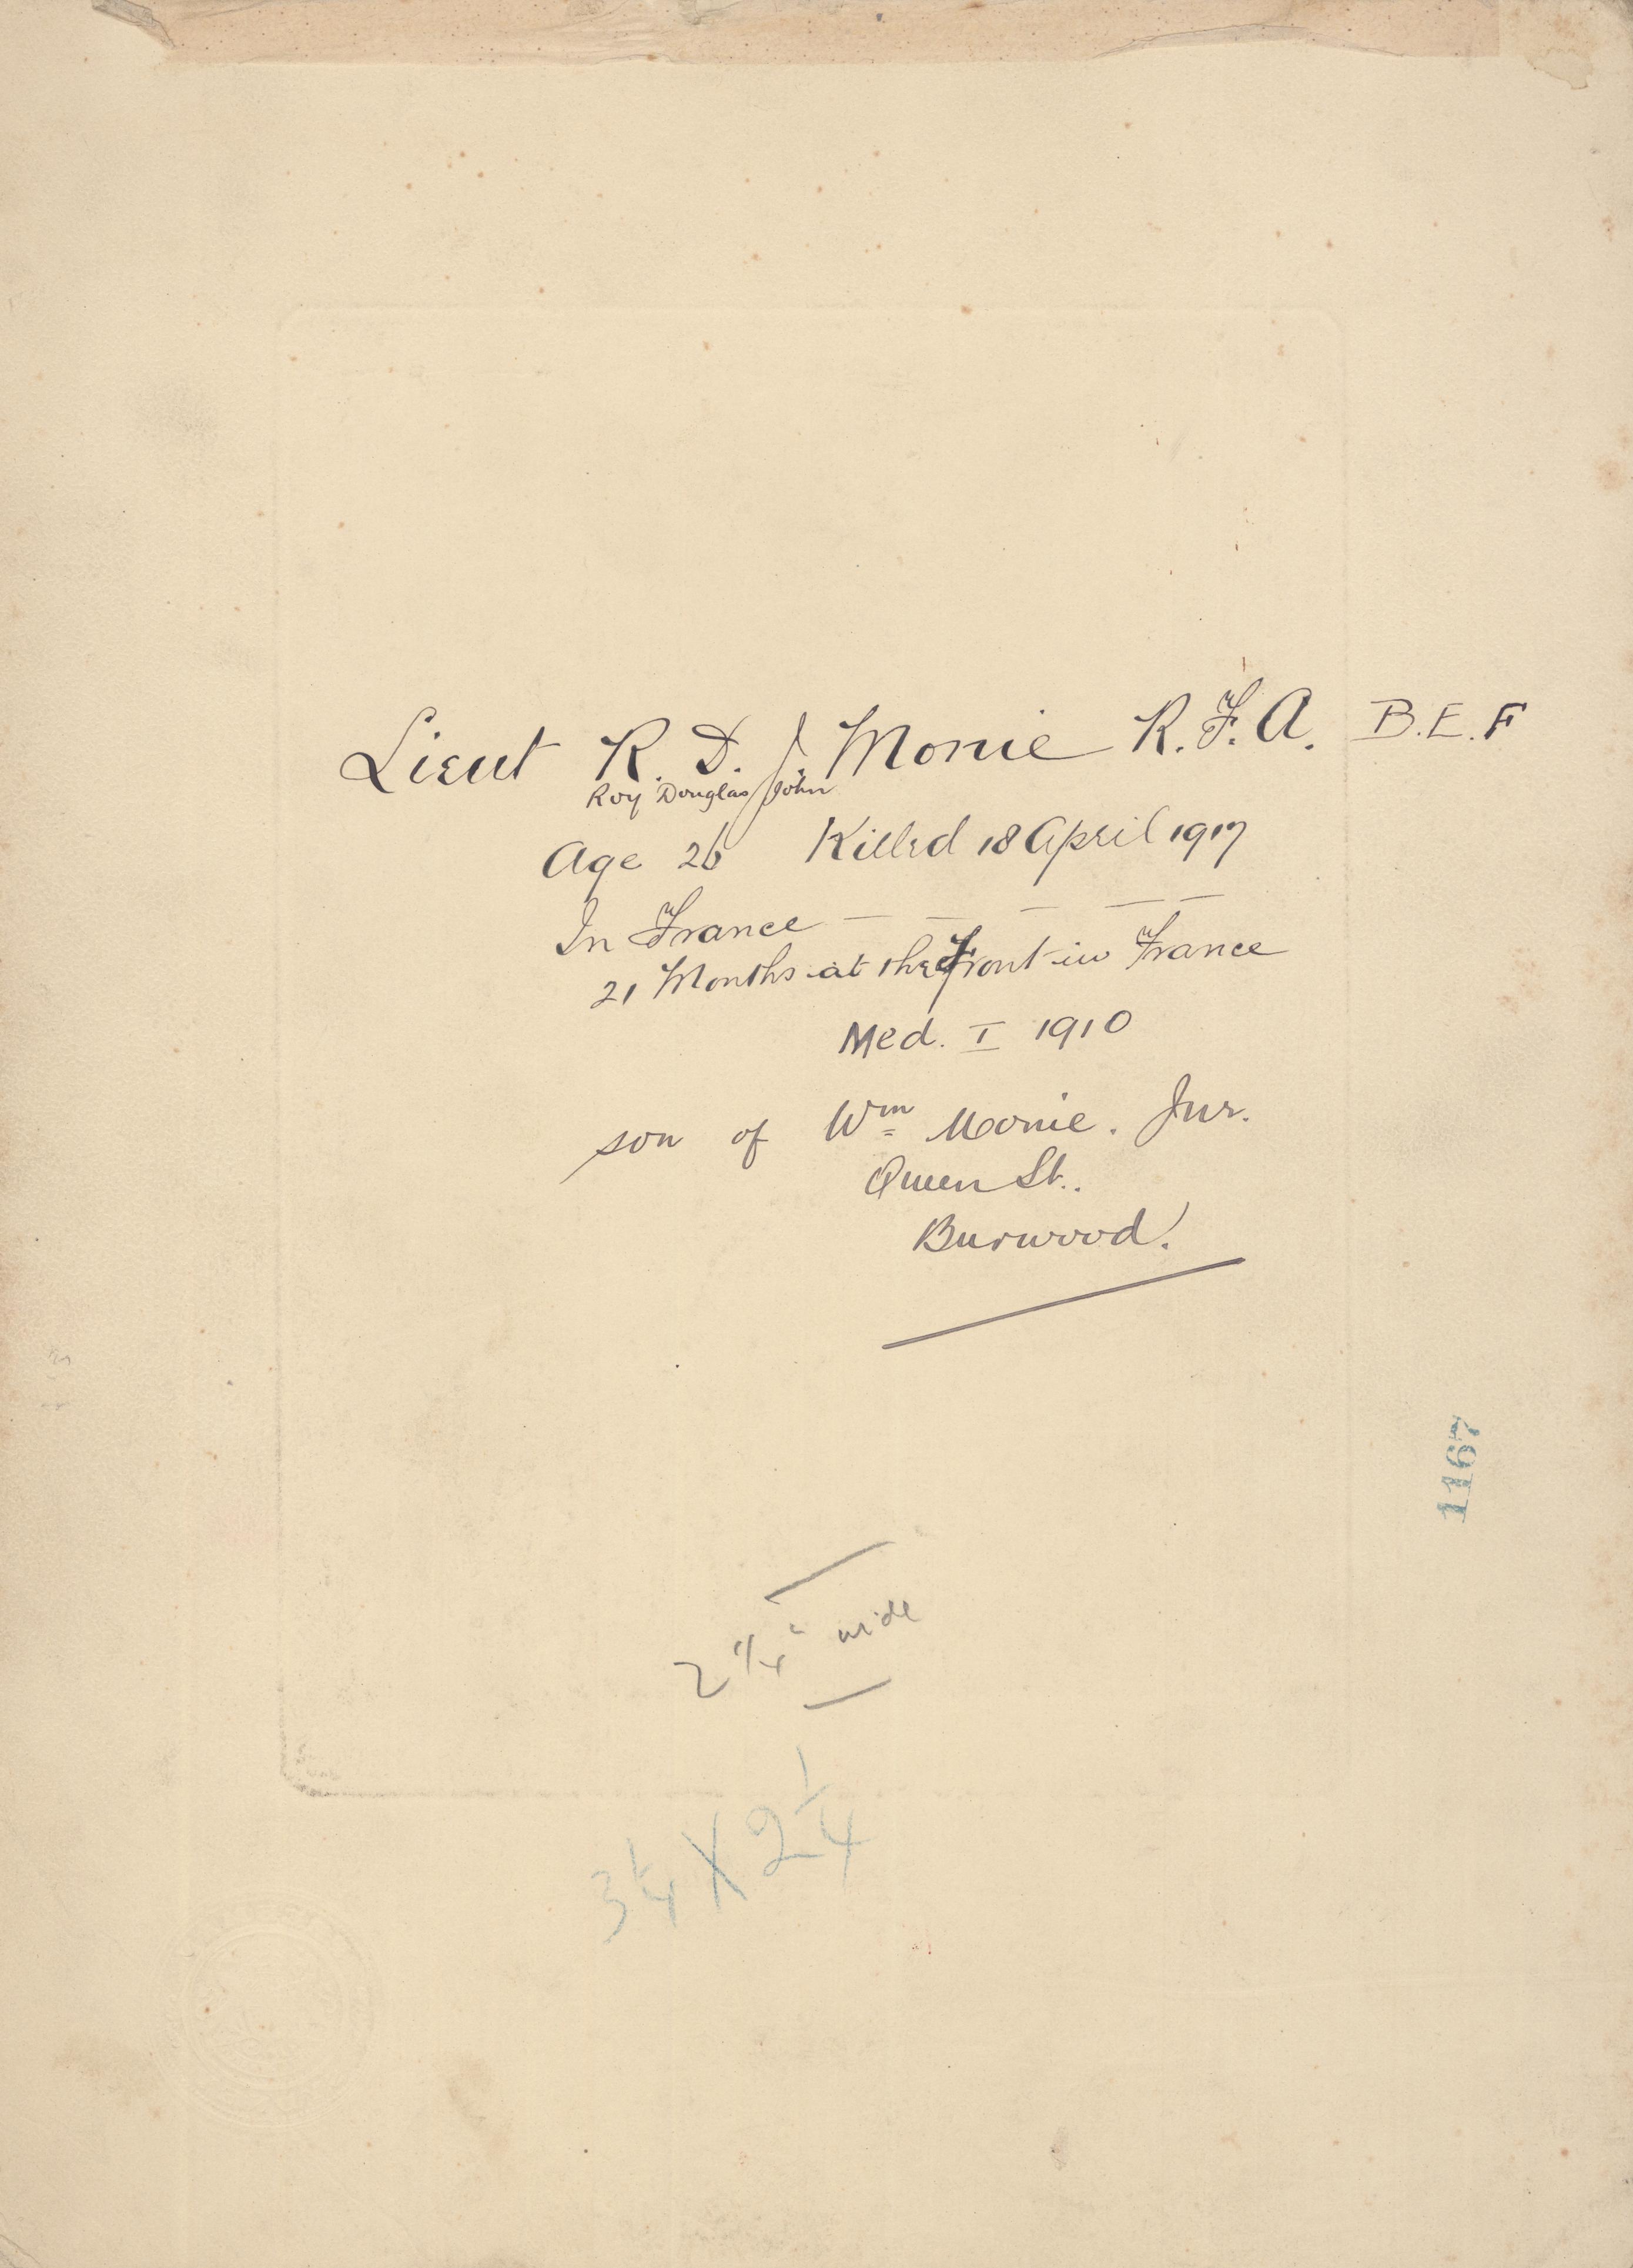 Lieut R. D. J. Monie R.F.A. B.E.F
Roy Douglas John
Age 26 Killed 18 April 1917
In France — — — — —
21 Months at the Front in France
Med. I 1910
son of Wm Monie. Jnr.
Queen St..
Burwood.
1167
2 1/4" wide
3 1/4 X 2 1/4